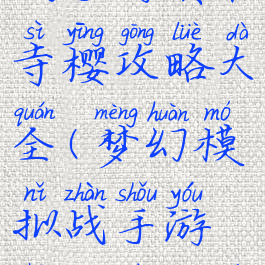 sì yīng gōng lüè dà
寺樱攻略大
quán mèng huàn mó
全(梦幻模
nǐ zhàn shǒu yóu
拟战手游